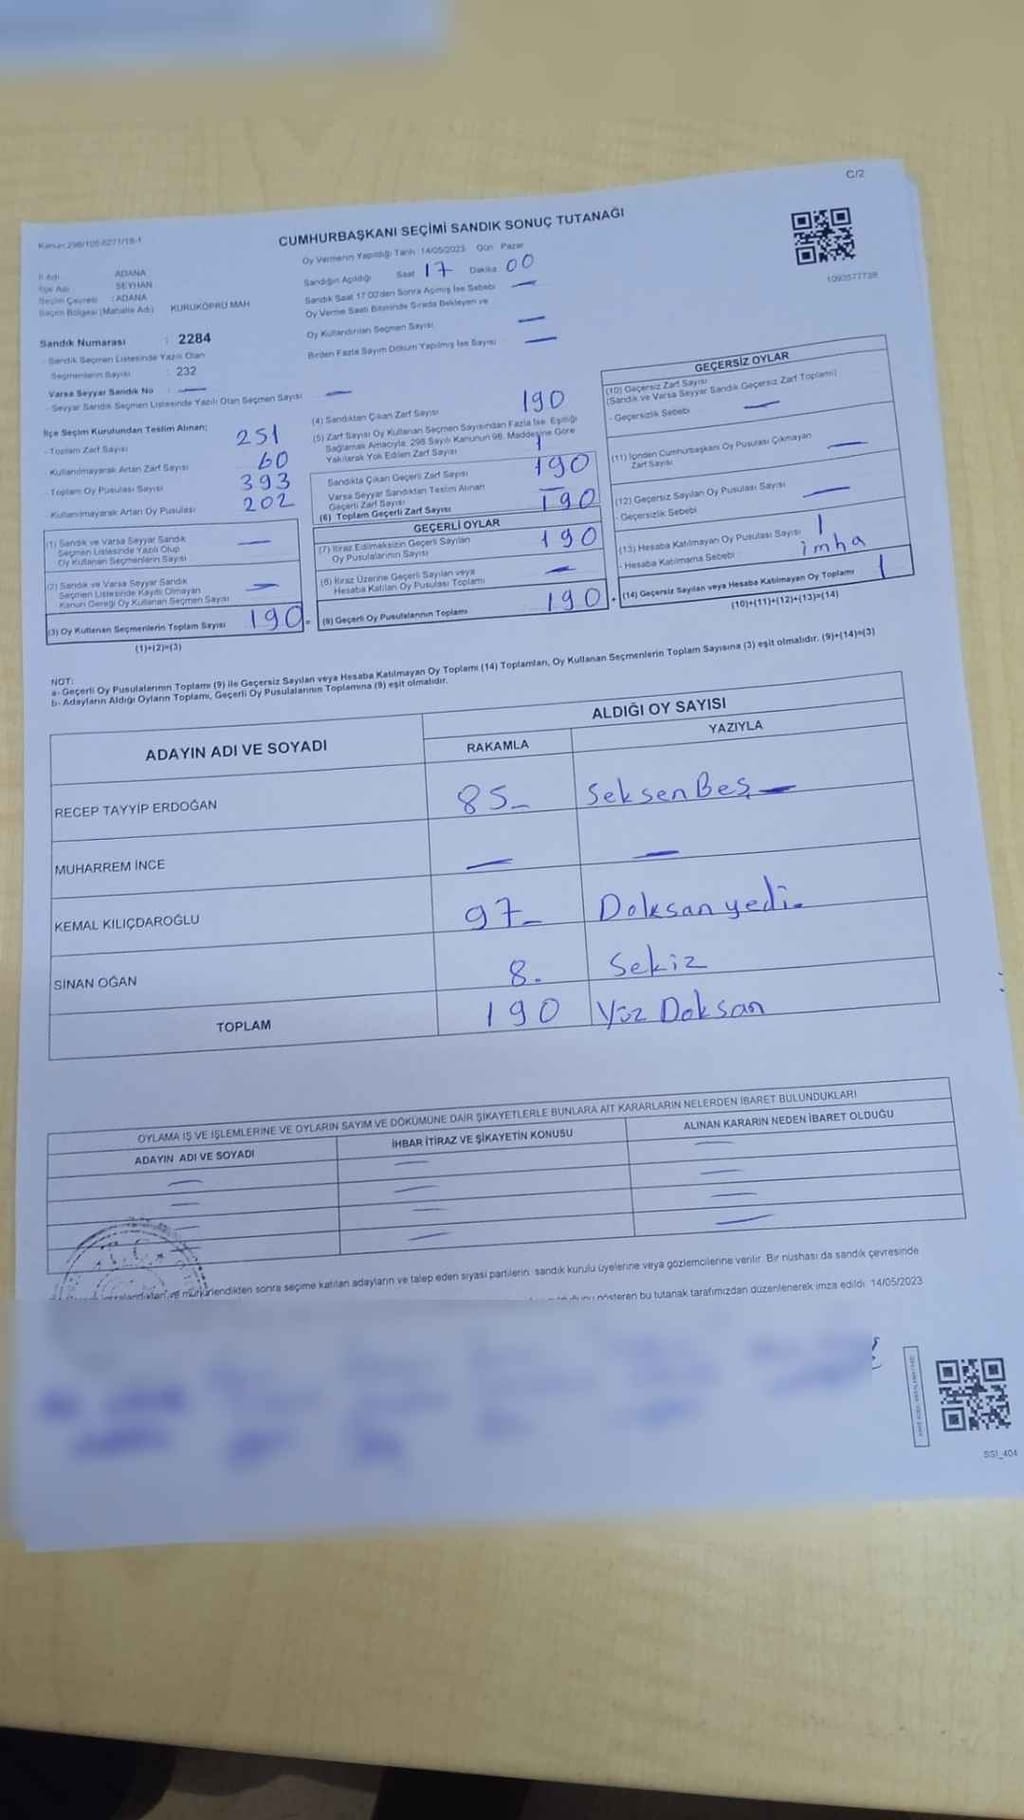 C/2
CUMHURBAŞKANI SEÇİMİ SANDIK SONUÇ TUTANAĞI
Oy Vermenin Yapıldığı Tarih :14/05/2023 Gün Pazar
Sandığın Açıldığı Saat 17 Dakika 00
Sandık Saat 17.00'den Sonra Açılmış İse Sebebi —
Oy Verme Saati Bitiminde Sırada Bekleyen ve
Oy Kullandırılan Seçmen Sayısı —
Birden Fazla Sayım Döküm Yapılmış İse Sayısı —
1093577739
İl Adı : ADANA
İlçe Adı : SEYHAN
Seçim Çevresi : ADANA
Seçim Bölgesi (Mahalle Adı) KURUKÖPRÜ MAH
Sandık Numarası : 2284
- Sandık Seçmen Listesinde Yazılı Olan
Seçmenlerin Sayısı : 232
Varsa Seyyar Sandık No : —
- Seyyar Sandık Seçmen Listesinde Yazılı Olan Seçmen Sayısı —
İlçe Seçim Kurulundan Teslim Alınan;
- Toplam Zarf Sayısı 251
- Kullanılmayarak Artan Zarf Sayısı 60
- Toplam Oy Pusulası Sayısı 393
- Kullanılmayarak Artan Oy Pusulası 202
(1) Sandık ve Varsa Seyyar Sandık
Seçmen Listesinde Yazılı Olup
Oy Kullanan Seçmenlerin Sayısı —
(2) Sandık ve Varsa Seyyar Sandık
Seçmen Listesinde Kayıtlı Olmayan
Kanun Gereği Oy Kullanan Seçmen Sayısı —
(3) Oy Kullanan Seçmenlerin Toplam Sayısı 190
(1)+(2)=(3)
(4) Sandıktan Çıkan Zarf Sayısı 190
(5) Zarf Sayısı Oy Kullanan Seçmen Sayısından Fazla İse, Eşitliği
Sağlamak Amacıyla, 298 Sayılı Kanunun 98. Maddesine Göre
Yakılarak Yok Edilen Zarf Sayısı 1
Sandıkta Çıkan Geçerli Zarf Sayısı 190
Varsa Seyyar Sandıktan Teslim Alınan
Geçerli Zarf Sayısı —
(6) Toplam Geçerli Zarf Sayısı 190
GEÇERLİ OYLAR
(7) İtiraz Edilmeksizin Geçerli Sayılan
Oy Pusulalarının Sayısı 190
(8) İtiraz Üzerine Geçerli Sayılan veya
Hesaba Katılan Oy Pusulası Toplamı —
(9) Geçerli Oy Pusulalarının Toplamı 190
GEÇERSİZ OYLAR
(10) Geçersiz Zarf Sayısı
(Sandık ve Varsa Seyyar Sandık Geçersiz Zarf Toplamı)
- Geçersizlik Sebebi —
(11) İçinden Cumhurbaşkanı Oy Pusulası Çıkmayan
Zarf Sayısı —
(12) Geçersiz Sayılan Oy Pusulası Sayısı —
- Geçersizlik Sebebi
(13) Hesaba Katılmayan Oy Pusulası Sayısı 1
- Hesaba Katılmama Sebebi imha
(14) Geçersiz Sayılan veya Hesaba Katılmayan Oy Toplamı 1
(10)+(11)+(12)+(13)=(14)
NOT:
a- Geçerli Oy Pusulalarının Toplamı (9) ile Geçersiz Sayılan veya Hesaba Katılmayan Oy Toplamı (14) Toplamları, Oy Kullanan Seçmenlerin Toplam Sayısına (3) eşit olmalıdır. (9)+(14)=(3)
b- Adayların Aldığı Oyların Toplamı, Geçerli Oy Pusulalarının Toplamına (9) eşit olmalıdır.
ADAYIN ADI VE SOYADI
ALDIĞI OY SAYISI
RAKAMLA YAZIYLA
RECEP TAYYİP ERDOĞAN 85- SeksenBeş—
MUHARREM İNCE — —
KEMAL KILIÇDAROĞLU 97- Doksanyedi-
SİNAN OĞAN 8. Sekiz
TOPLAM 190 Yüz Doksan
OYLAMA İŞ VE İŞLEMLERİNE VE OYLARIN SAYIM VE DÖKÜMÜNE DAİR ŞİKAYETLERLE BUNLARA AİT KARARLARIN NELERDEN İBARET BULUNDUKLARI
ADAYIN ADI VE SOYADI İHBAR İTİRAZ VE ŞİKAYETİN KONUSU ALINAN KARARIN NEDEN İBARET OLDUĞU
mühürlendikten sonra seçime katılan adayların ve talep eden siyasi partilerin sandık kurulu üyelerine veya gözlemcilerine verilir. Bir nüshası da sandık çevresinde
gösteren bu tutanak tarafımızdan düzenlenerek imza edildi. 14/05/2023
SSI_404